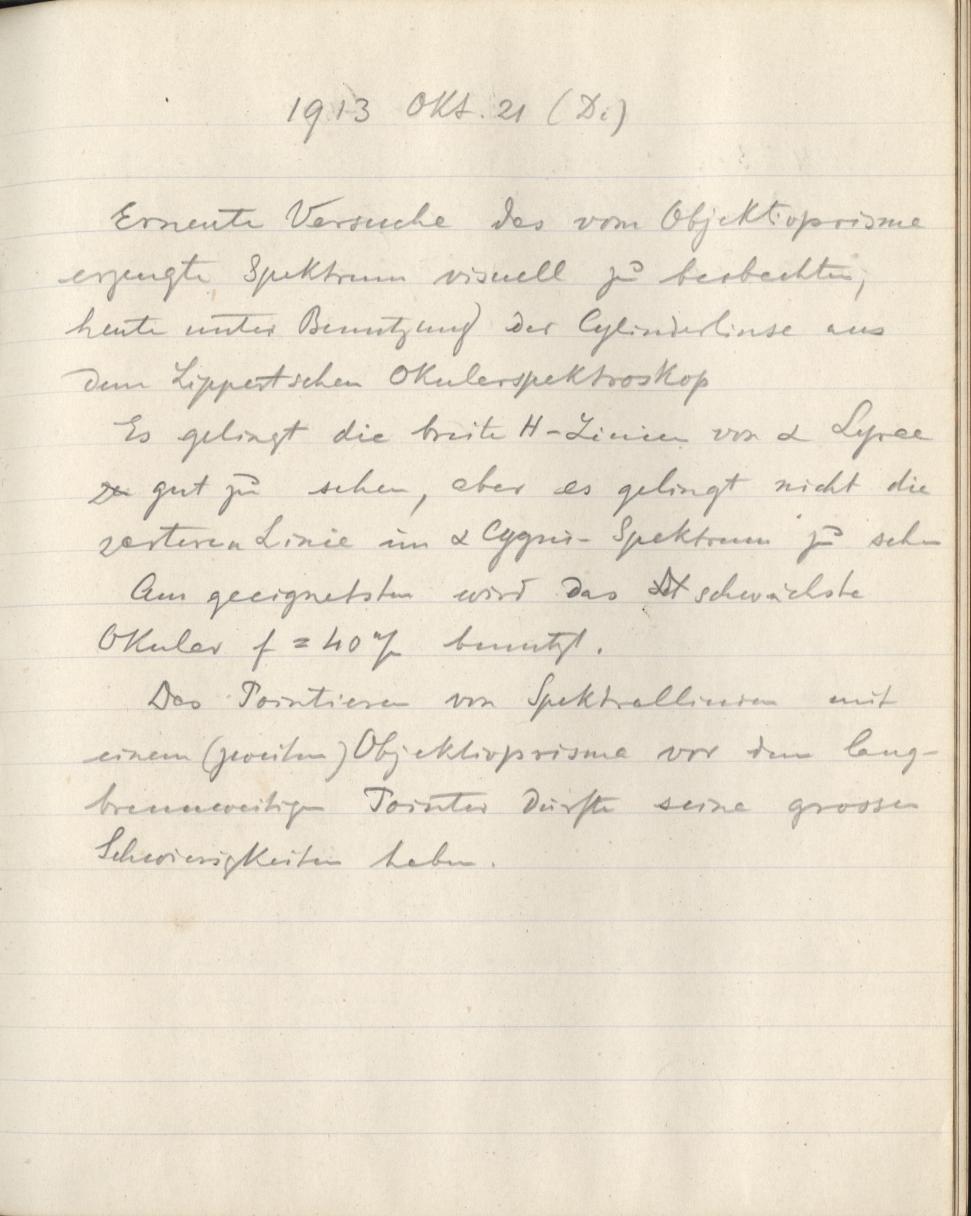 1913 Okt. 21 (Di)
Erneute Versuche das vom Objektivprisma
erzeugte Spektrum visuell zu beobachten,
heute unter Benutzung der Cylinderlinse aus
dem Lippertschen Okularspektroskop
Es gelingt die breite H-Linien von α Lyrae
gut zu sehen, aber es gelingt nicht die
zarteren Linie im α Cygnis-Spektrum zu sehen
Am geeignetsten wird das schwächste
Okular f = 40 m/m benutzt.
Das Pointieren von Spektrallinien mit
einem (zweiten) Objektivprisma vor dem lang-
brennweitigen Pointer dürfte seine grossen
Schwierigkeiten haben.